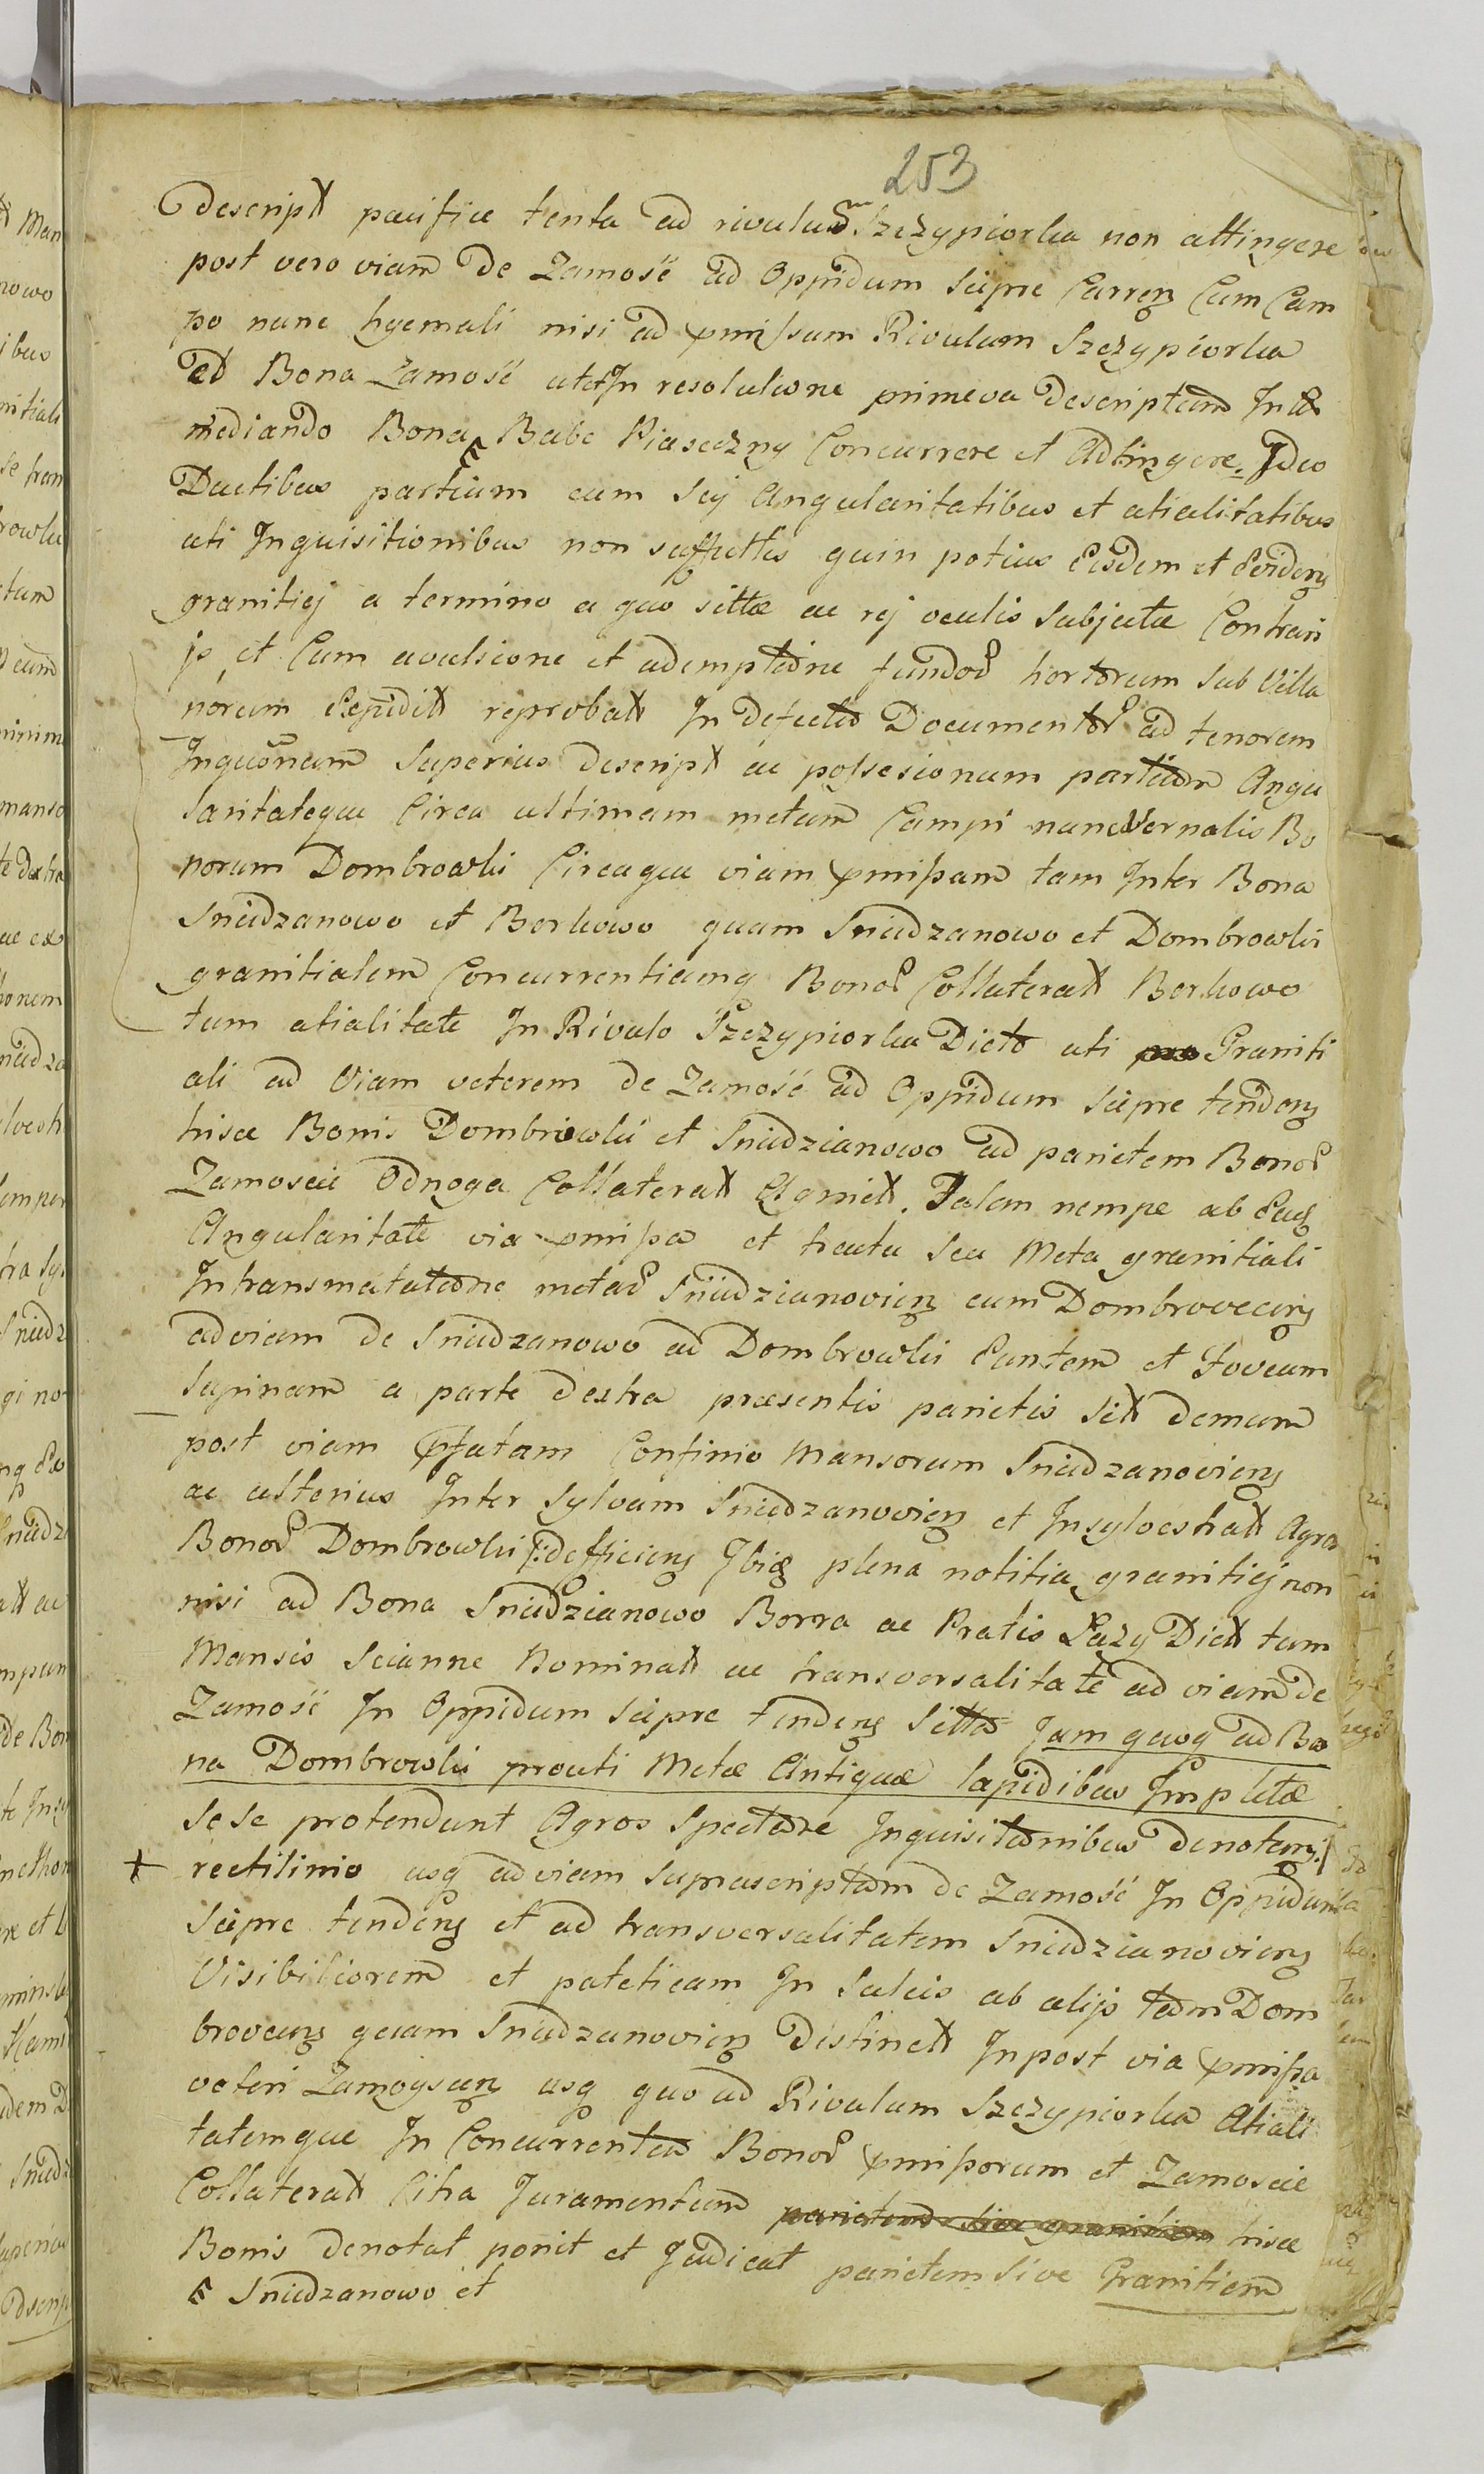 253
descript pacifice tenta ad rivulum Szczypiorka non attingere
post vero viam de Zamosć ad Oppidum Siepre Curren Cum Cam
po nunc hyemali nisi ad pmissum Rivulum Szczypiorka
et Bona Zamość uti In resolutione primeva descriptum Inter
mediando Bona Babe Piaseczny Concurrere et Adtingere. Ideo
Ductibus partium cum Scij Angularitatibus et atialitatibus
uti Inquisitionibus non suffultis quin potius Eisdem et Eviden
granitiej a termino a quo sittæ ac rej oculis Subjectæ Contrari
js et Cum avulsione et ademptione fundor hortorum Sub Villa
norum reprobatt In defectu Documentor ad tenorem
Inquonum Superius descript ac possesionum partium Angu
laritateque Circa ultimam metam Campi nunc Vernalis Bo
norum Dombrowki Circaque viam pmissam tam Inter Bona
Sniedzanowo et Borkowo quam Sniedzanowo et Dombrowki
granitialem Concurrentiamq Bonor Collaterat Borkowo
tum atialitate In Rivulo Szczypiorka Dicto uti pro Graniti
ali ad Viam veterem de Zamość ad Oppidum Siepre tenden
hisce Bonis Dombrowki et Sniedzianowo ad parietem Bonor
Zamoscie Odnoga Collaterat Agnict. Talem nempe ab Ead
Angularitate via pmissa et tractu Seu Meta granitiali
In transmutatione metar Sniedzianovien cum Dombrovecen
ad viam de Sniedzanowo ad Dombrowki Euntem et Foveam
Supinam a parte dextra præsentis parietis Sitt demum
post viam pfatam Confinio Mansorum Sniedzanovien
ac ulterius Inter Sylvam Sniedzanovien et Insylvestratt Agra
Bonor Dombrowki /: defficien Ibid plena notitia granitiej non
nisi ad Bona Sniedzianowo Borra ac Pratis Łazy Dictt tum
Mansis Scianne Nominatt ac transversalitate ad viam de
Zamość In Oppidum Siepre tenden Sitta Jam quoq ad Bo
na Dombrowki prouti Metæ Antiquæ lapidibus Impletæ
sese protendunt Agros Spectare Inquisitionibus denotan :/
+ rectilinio usq ad viam Suprascriptam de Zamość In Oppidum
Siepre tenden et ad transversalitatem Sniedzianovien
Visibiliorem et pateticam In Sulcis ab alijs tam Dom
brovecen quam Sniedzanovien Distinctt In post via pmissa
veteri Zamoyscen usq quo ad Rivulum Szczypiorka Atiali
tatemque In Concurrentia Bonor pmissorum et Zamoscie
Collateratt Citra Juramentum parietem sive granitiem hisce
Bonis denotat ponit et Judicat parietem Sive Granitiem
Sniedzanowo et